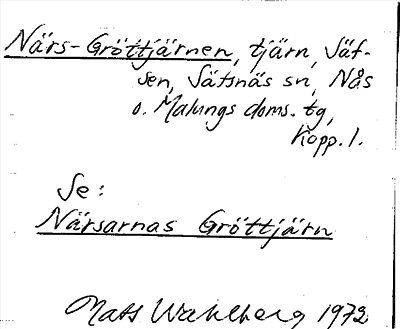 Närs-Gröttjärnen, tjärn, Säf-
sen, Säfsnäs sn, Nås
o. Malungs doms. tg,
Kopp. l.
Se:
Närsarnas Gröttjärn
Mats Wahlberg 1972